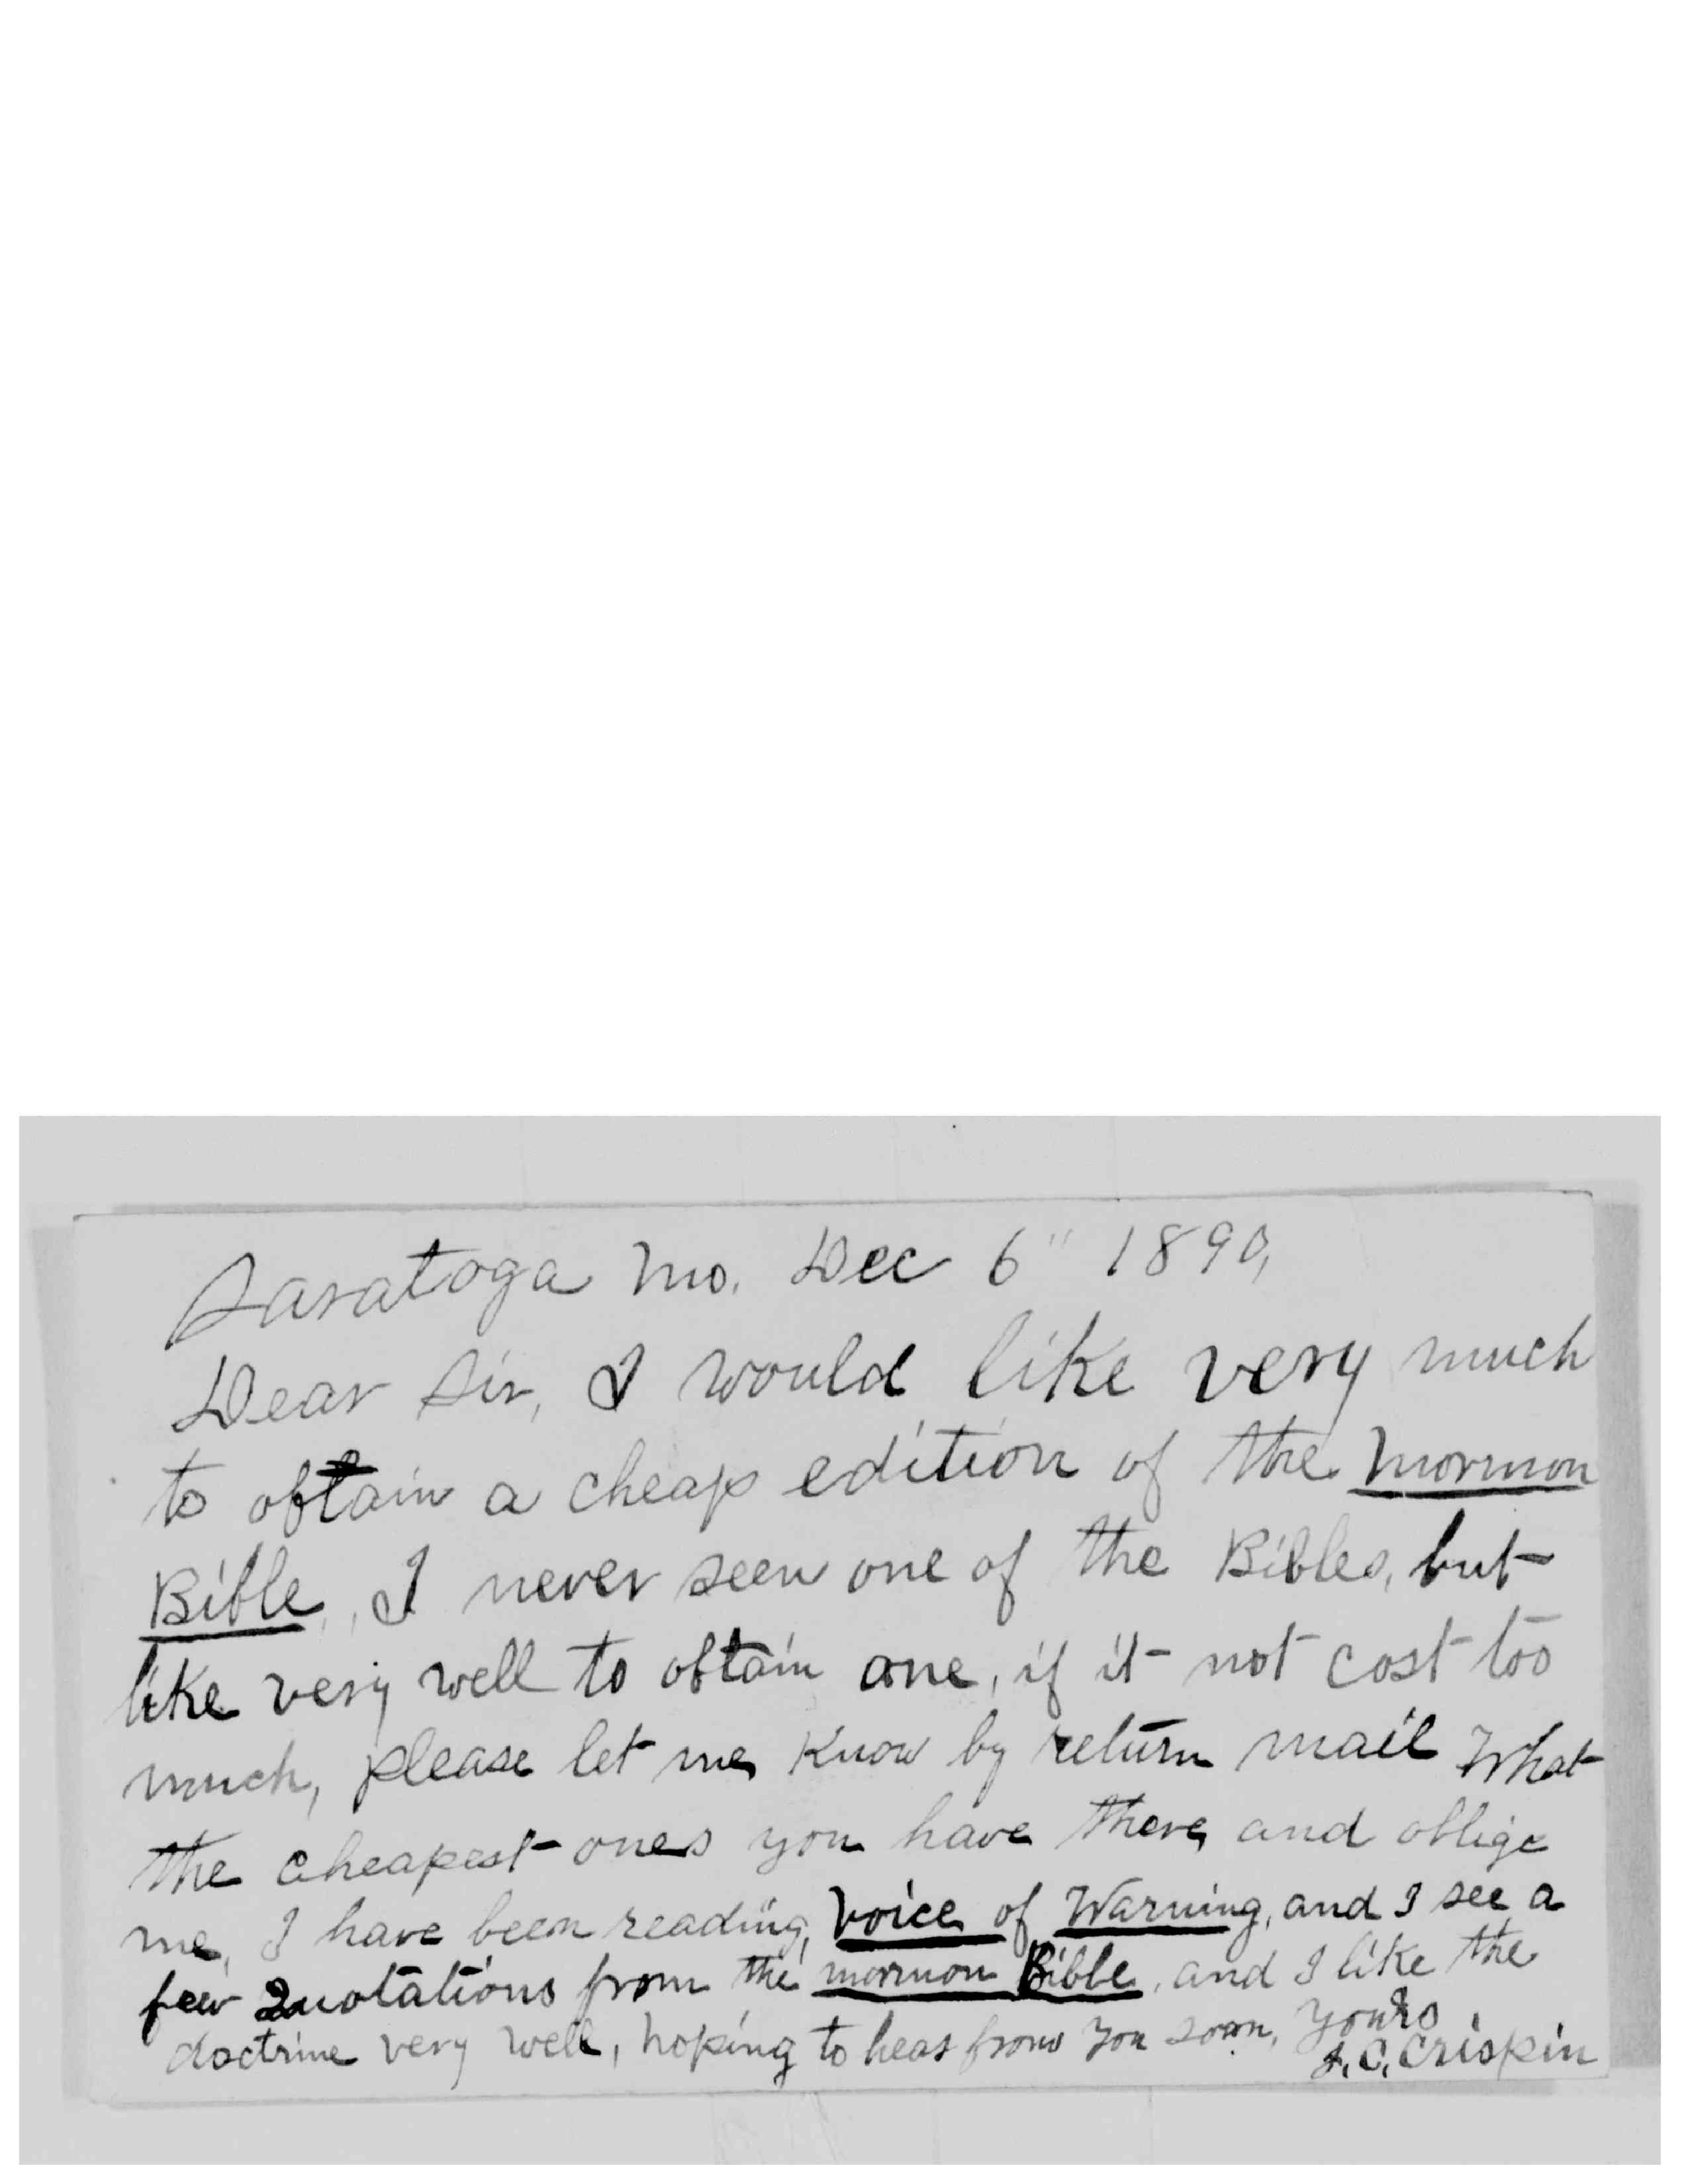 Saratoga Mo. Dec 6" 1890,
Dear Sir, I would like very much
to obtain a cheap edition of the Mormon
Bible, I never seen one of the Bibles, but
like very well to obtain one, if it not cost too
much, please let me Know by return mail What
the cheapest ones you have there, and oblige
me, I have been reading, Voice of Warning, and I see a
few Quotations from the mormon Bible, and I like the
doctrine very well, hoping to hear from you soon, Yours
C. Crispin